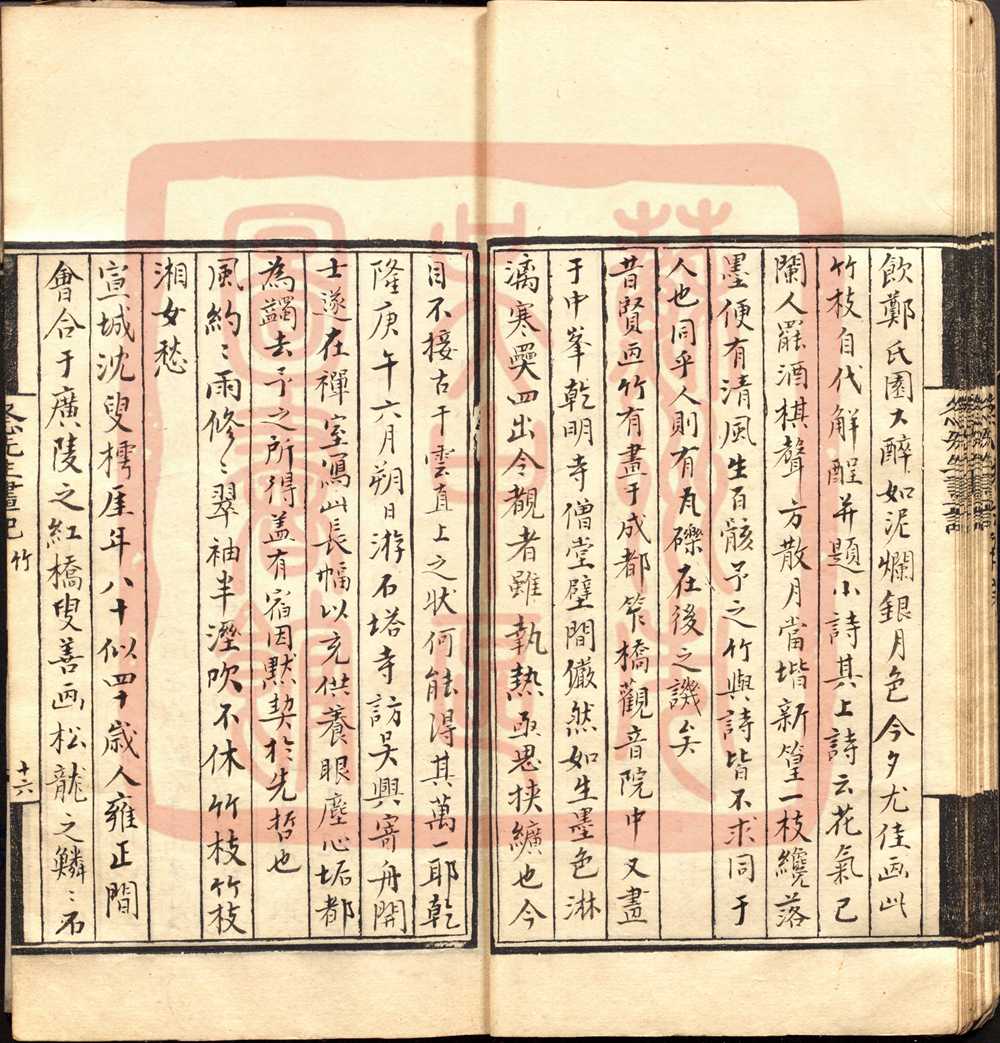 飲鄭氏園大醉如泥爛銀月色今夕尤佳画此
竹枝自代解酲并題小詩其上詩云花氣已
闌人罷酒棋聲方散月當堦新篁一枝纔落
墨便有清風生百骸予之竹與詩皆不求同于
人也同乎人則有瓦礫在後之譏矣
昔賢画竹有畫于成都笮橋觀音院中又畫
于中峯乾明寺僧堂壁間儼然如生墨色淋
漓寒奰四出令觀者雖執熱亟思挟纊也今
目不接古干雲直上之状何能得其萬一耶乾
隆庚午六月朔日游石塔寺訪吴興寄舟開
士遂在禪室寫此長幅以充供養眼塵心垢都
為蠲去予之所得盖有宿因默契於先哲也
風約〻雨修〻翠袖半溼吹不休竹枝竹枝
湘女愁
宣城沈叟樗厓年八十似四十歲人雍正間
會合于廣陵之紅橋叟善画松龍之鱗〻石
冬心先生畫記 竹
十六